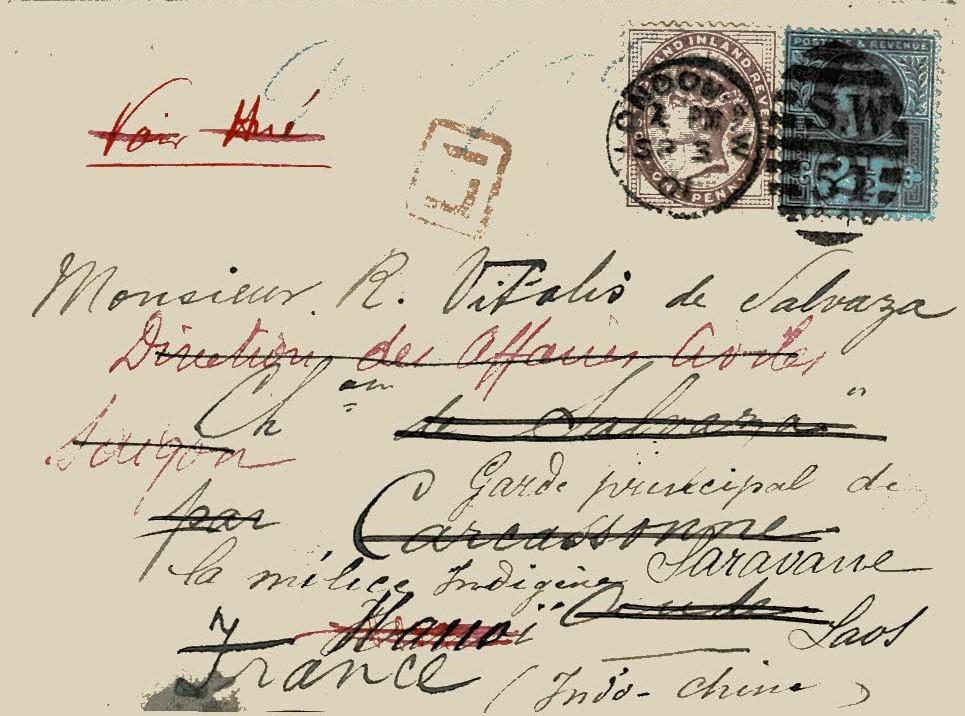 Voir Hué
POSTAGE AND INLAND REVENUE
ONE PENNY
LONDON S.W
7 PM
SP 3
01
POSTAGE & REVENUE
S.W.
2½
T
Monsieur R. Vitalis de Salvaza
Direction des Affaires Civiles
Ch^eau "de Salvaza"
Saïgon
Garde principal de
par Carcassonne
la milice Indigène Saravane
Hanoï Aude Laos
France
(Indo-Chine)